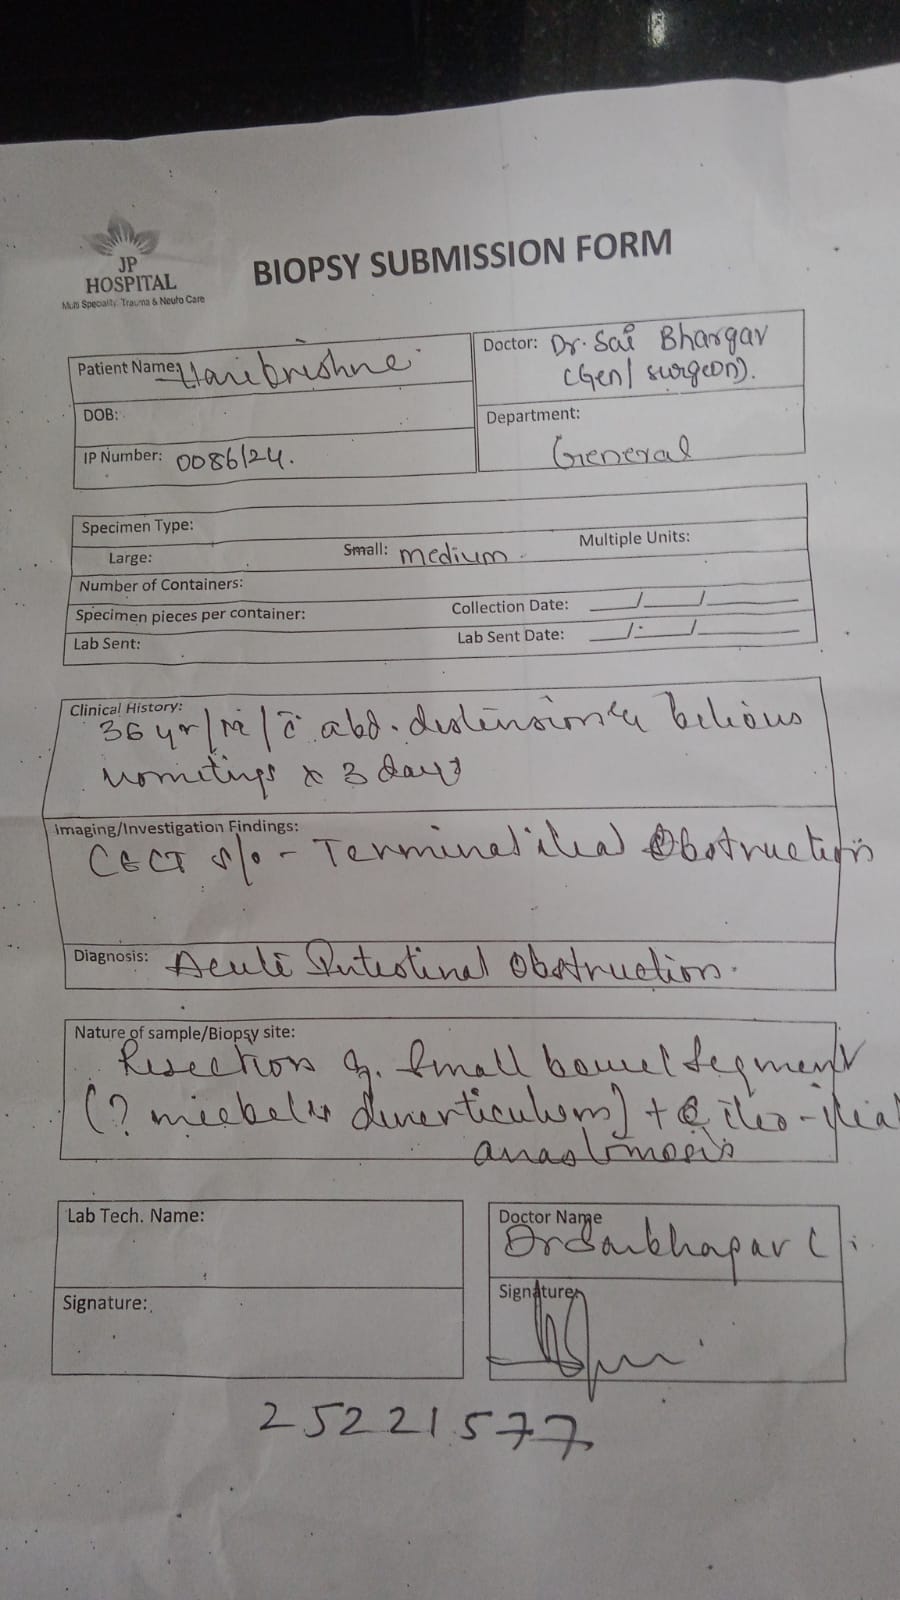 JP
HOSPITAL
Multi Speciality, Trauma & Neuro Care
BIOPSY SUBMISSION FORM
Patient Name: Harikrishne
Doctor: Dr. Sai Bhargav
(Gen/ surgeon).
DOB:
Department:
General
IP Number: 0086/24.
Specimen Type:
Large: Small: medium Multiple Units:
Number of Containers:
Specimen pieces per container: Collection Date: __/__/__
Lab Sent: Lab Sent Date: __/__/__
Clinical History:
36 yr/M/ c̄ abd. distension & bilious
vomitings x 3 days
Imaging/Investigation Findings:
CECT s/o - Terminal ileal Obstruction
Diagnosis: Acute Intestinal Obstruction.
Nature of sample/Biopsy site:
Resection of Small bowel segment
(? meckels diverticulum) + ileo-ileal
anastomosis
Lab Tech. Name:
Doctor Name
Dr Saibhargav C
Signature:
Signature:
25221577